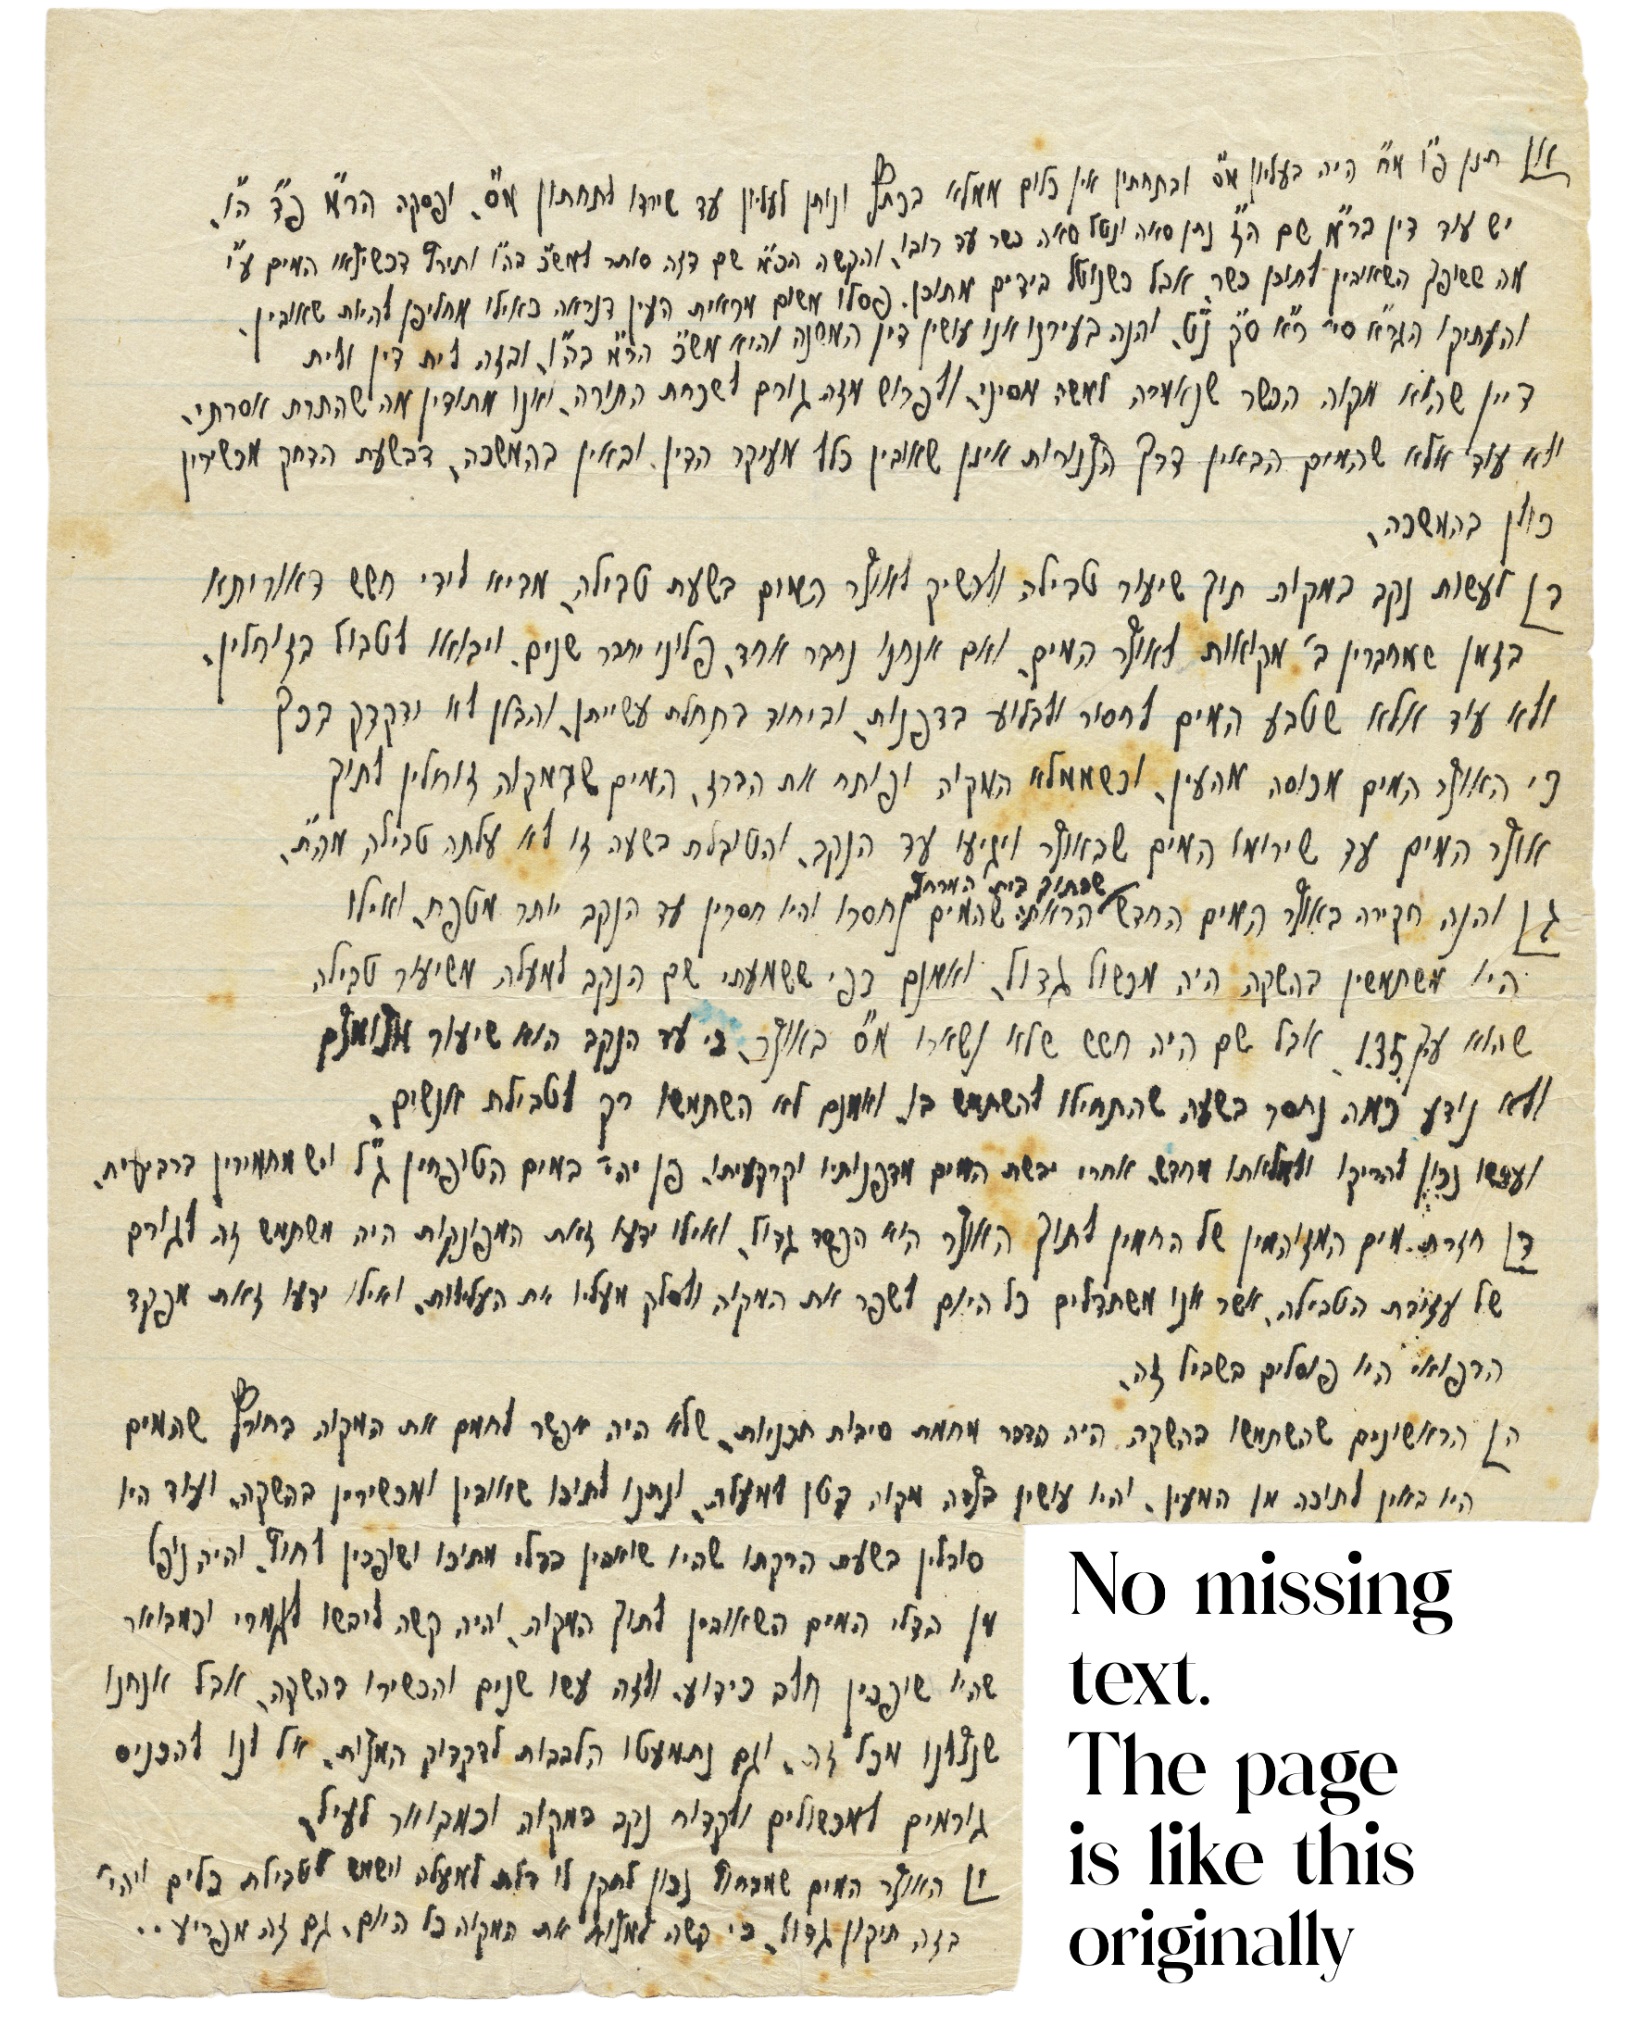 א] תנן פ"ו מ"ח היה בעליון מ"ס ובתחתון אין כלום ממלא בכתף ונותן לעליון עד שירדו לתחתון מ"ס. ופסקה הר"מ פ"ד ה"ו,
יש עוד דין בר"מ שם ה"ז נתן סאה ונטל סאה כשר עד רובו, והקשה הכ"מ שם דזה סותר למש"כ בה"ו ותירץ דכשיצאו המים ע"י
מה ששופך השאובין לתוכן כשר אבל כשנוטל בידים מתוכן. פסלו משום מראית העין דנראה כאילו מחליפן להיות שאובין,
והעתיקו הגר"א סי' ר"א ס"ק נ"ט, והנה בעירנו אנו עושין דין המשנה והיא מש"כ הר"מ בה"ו, ובזה לית דין ולית
דיין שהוא מקוה הכשר שנאמרה למשה מסיני, ולפרוש מזה גורם לשכחת התורה, ואנו מתודין מה שהתרת אסרתי,
ולא עוד אלא שהמים הבאין דרך הצנורות אינן שאובין כלל מעיקר הדין, ובאין בהמשכה, דבשעת הדחק מכשירין
כולן בהמשכה,
ב] לעשות נקב במקוה תוך שיעור טבילה ולהשיק לאוצר המים בשעת טבילה, מביא לידי חשש דאוריתא
בזמן שמחברין ב' מקואות לאוצר המים, ואם אנחנו נחבר אחד, פלוני יחבר שנים, ויבואו לטבול בזוחלין,
ולא עוד אלא שטבע המים לחסור ולבלוע בדפנות, וביחוד בתחלת עשייתן, והבלן לא ידקדק בכך
כי האוצר המים מכוסה מהעין, וכשממלא המקוה ופותח את הברז, המים שבמקוה זוחלין לתוך
אוצר המים עד שירומו המים שבאוצר ויגיעו עד הנקב, והטובלת בשעה זו לא עלתה טבילה מה"ת,
שבתוך בית המרחץ
ג] והנה חקירה באוצר המים החדש הראתה שהמים נחסרו והיו חסרין עד הנקב יותר מטפח, ואילו
היו משתמשין בהשקה היה מכשול גדול, ואמנם כפי ששמעתי שם הנקב למעלה משיעור טבילה
שהוא עיקר זדון, אבל שם היה חשש שלא נשארו מ"ס באוצר, כי עד הנקב הוא שיעור מצומצם
ולא נודע כמה נחסר בשעה שהתחילו להשתמש בו, ואמנם לא השתמשו רק לטבילת אנשים,
ועכשו נכון להריקו ולמלאותו מחדש אחרי יבשת המים מדפנותיו וקרקעיתו, פן יהי' במים הטופחין ג"ל ויש מחמירין ברביעית,
ד] חזרת מים המזוהמין של החמין לתוך האוצר הוא הפסד גדול, ואילו ידעו זאת המפונקות היה משתמש זה לגורם
של עזיבת הטבילה, אשר אנו משתדלים כל היום לשפר את המקוה ולסלק מעליו את העלילות, ואילו ידעו זאת מפקד
הרפואי היו פוסלים בשביל זה,
ה] הראשונים שהשתמשו בהשקה היה הדבר מחמת סיבות תכניות, שלא היה אפשר לחמם את המקוה בחורף שהמים
היו באין לתוכה מן המעין, והיו עושין בצדה מקוה קטן למעלה, ונתנו לתוכו שאובין ומכשירין בהשקה, ועוד היו
סובלין בשעת הרקתו שהיו שואבין בדלי מתוכו ושופכין לחוץ, והיה נופל
מן הדלי המים השאובין לתוך המקוה, והיה קשה ליבשו לגמרי וכמבואר
שהיו שופכין חלב כידוע, ולזה עשו שנים והכשירו בהשקה, אבל אנחנו
שנצלנו מכל זה, וגם נתמעטו הלבבות לדקדוק המצות, אל לנו להכניס
גורמים למכשולים ולקדוח נקב במקוה וכמבואר לעיל,
ו] האוצר המים שמבחוץ נכון לתקן לו דלת למעלה וישמש לטבילת כלים ויהי'
בזה תיקון גדול, כי קשה למצוא את המקוה כל היום, גם זה מפריע..
No missing
text.
The page
is like this
originally